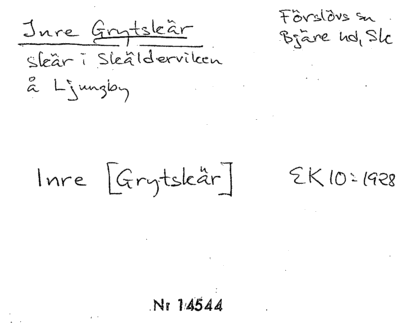 Inre Grytskär
Förslövs sn
Bjäre hd, Sk
skär i Skälderviken
å Ljungby
Inre [Grytskär]
EK 10:1928
Nr 14544